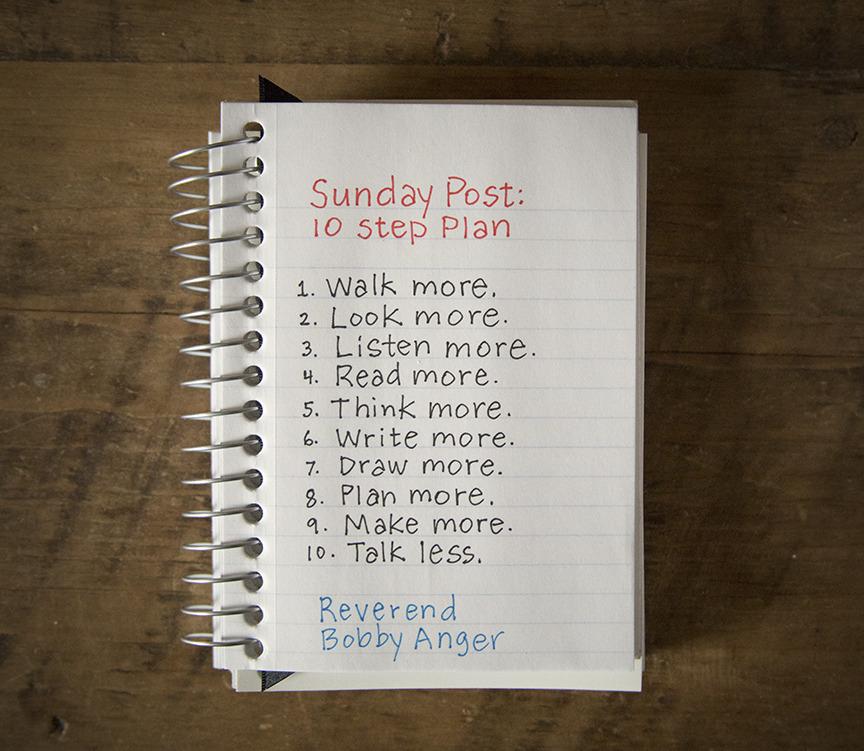 Sunday Post:
10 Step Plan
1. Walk more.
2. Look more.
3. Listen more.
4. Read more.
5. Think more.
6. Write more.
7. Draw more.
8. Plan more.
9. Make more.
10. Talk less.
Reverend
Bobby Anger